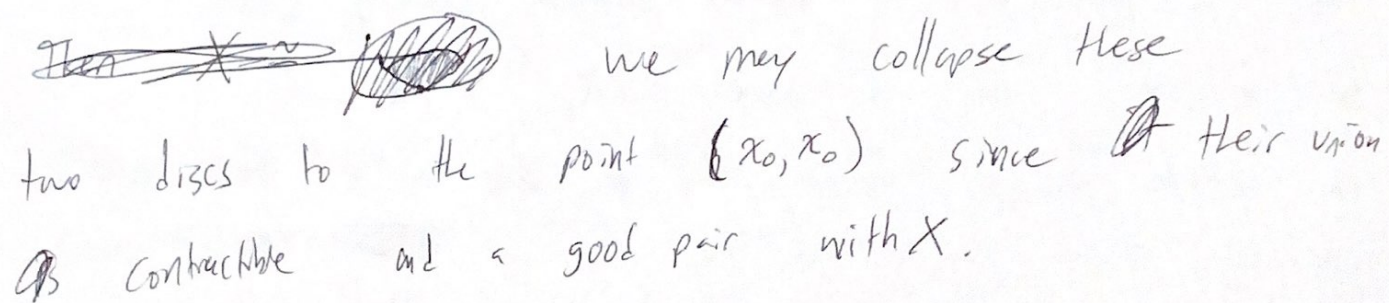 we may collapse these
two discs to the point (x₀, x₀) since their union
is contractible and a good pair with X.